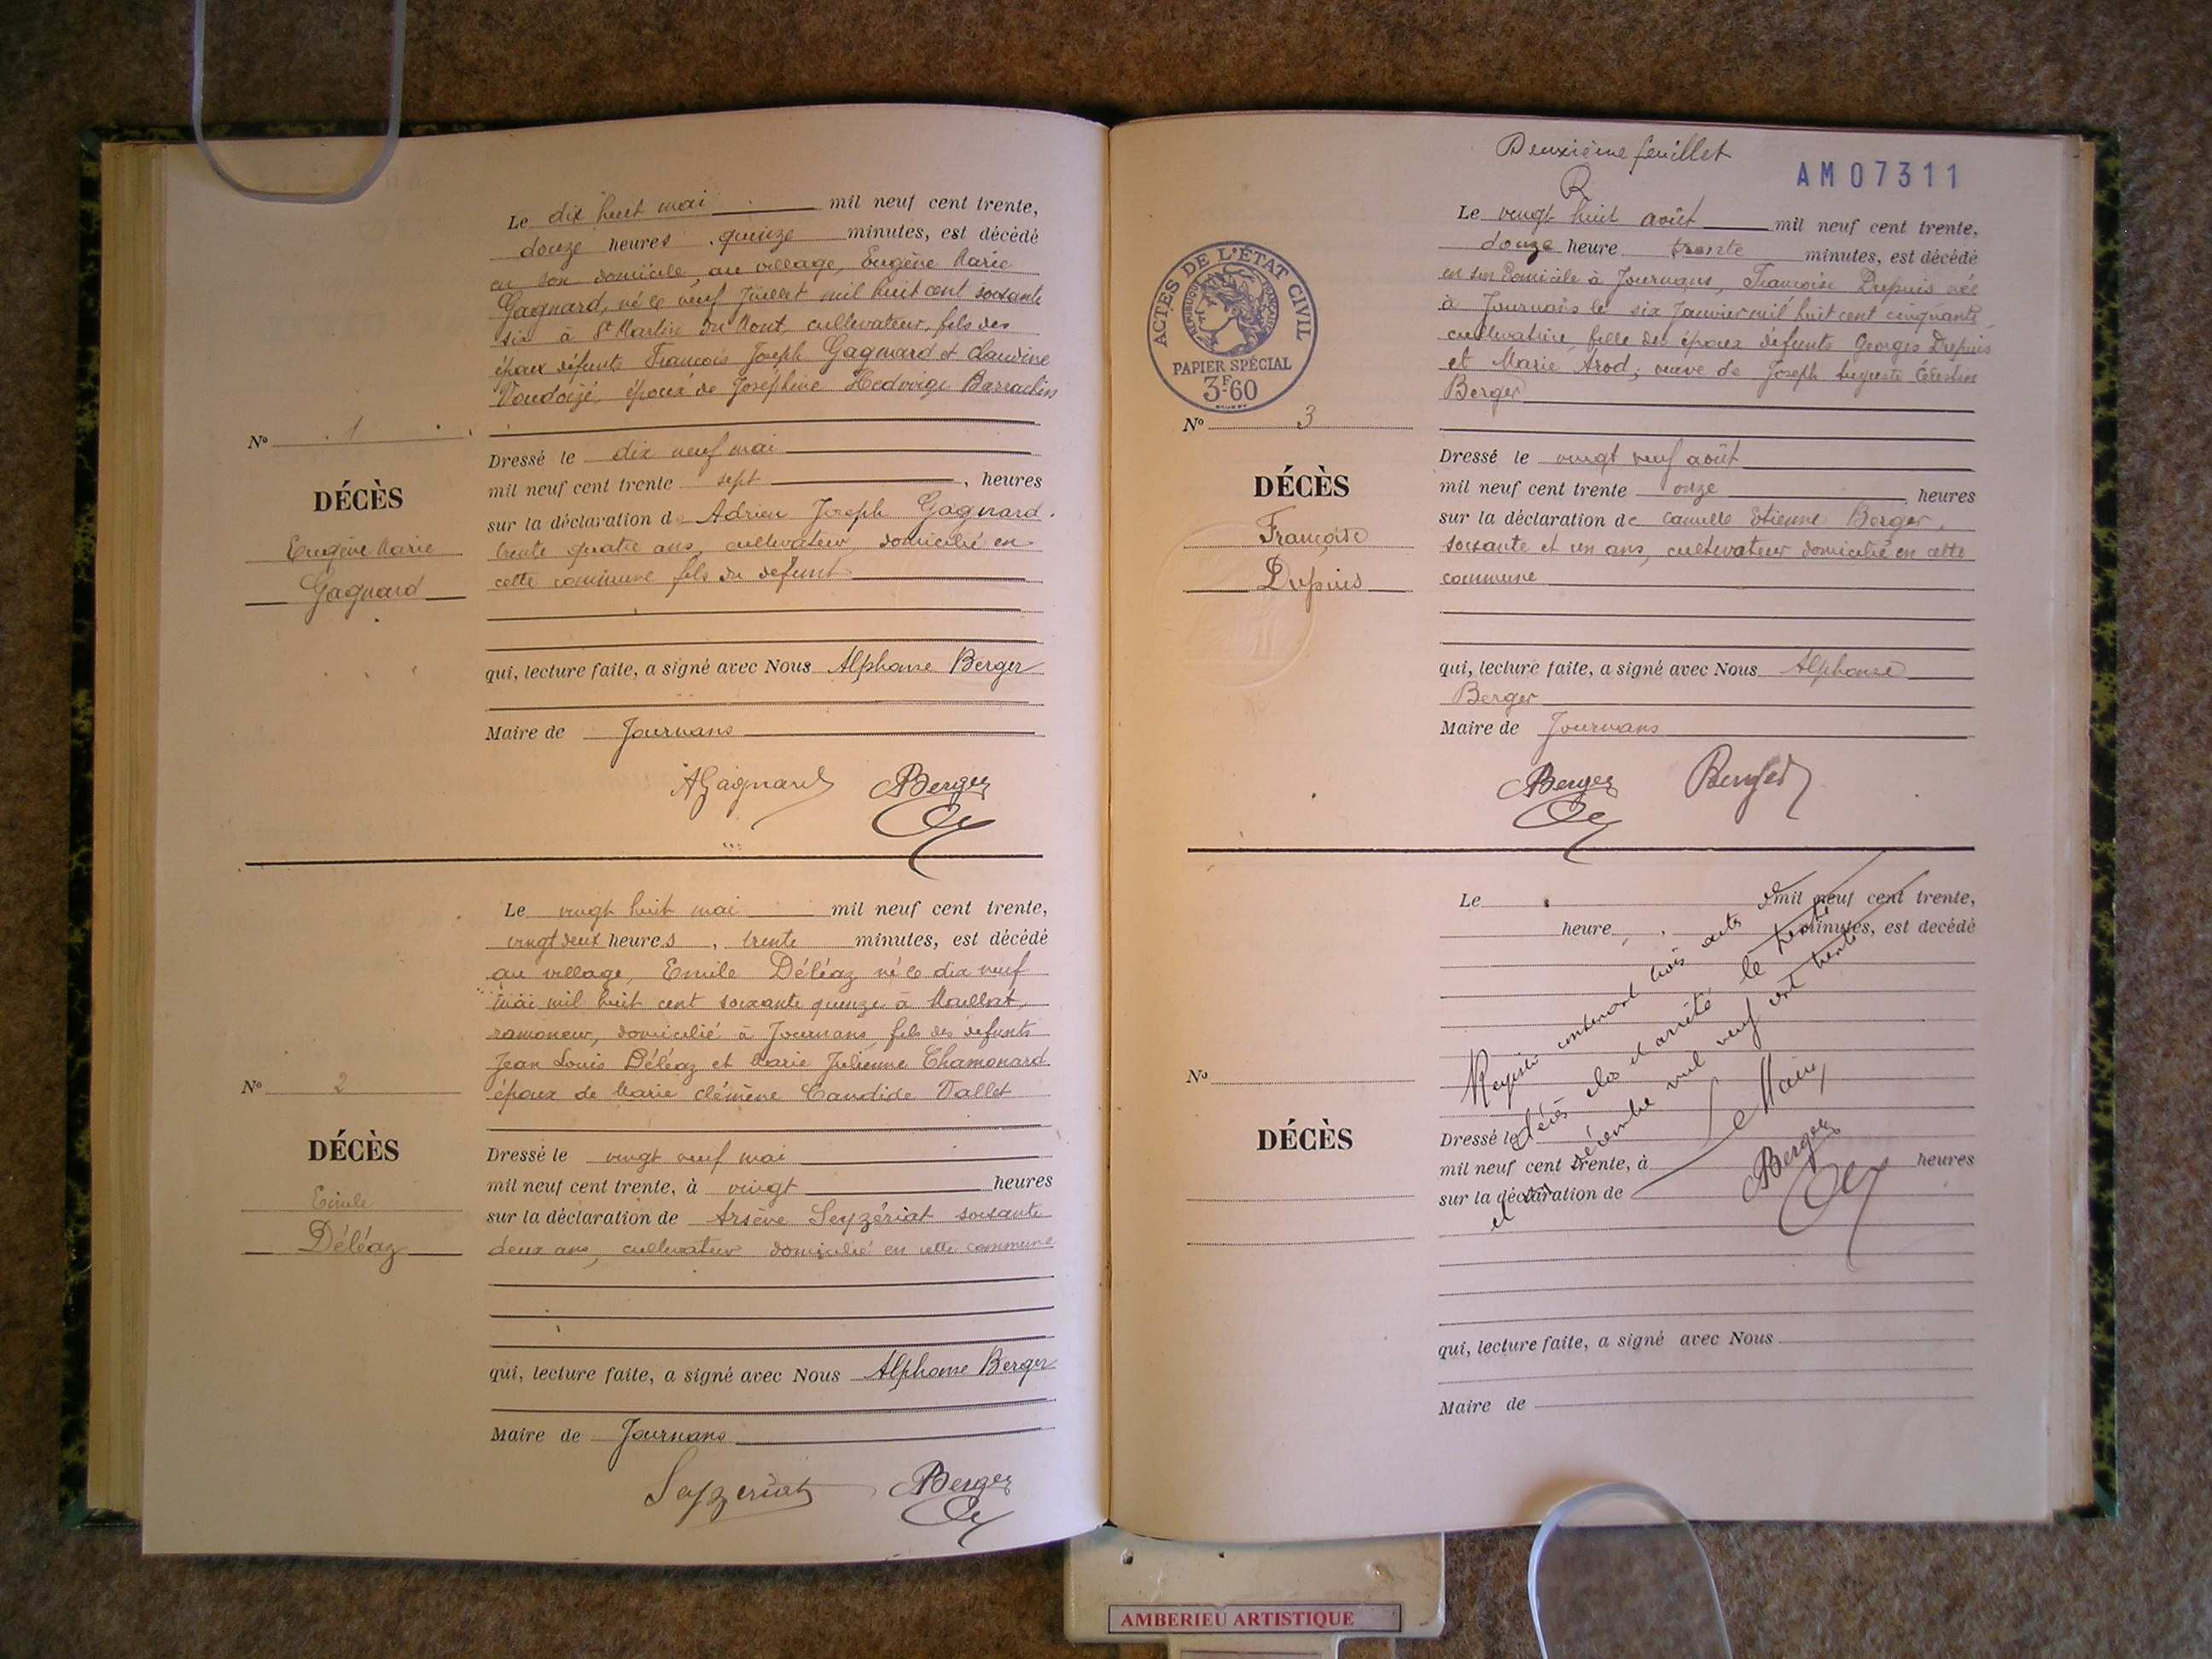 Le dix huit mai mil neuf cent trente,
douze heures quinze minutes, est décédé
en son domicile au village, Eugène Marie
Gagnard, né le neuf Juillet mil huit cent soixante
six à St Martin du Mont, cultivateur, fils des
époux défunts François Joseph Gagnard et Claudine
époux de Joséphine Hedwige Barrachin
No 1
DÉCÈS
Eugène Marie
Gagnard
Dressé le dix neuf mai
mil neuf cent trente sept, heures
sur la déclaration d Adrien Joseph Gagnard.
trente quatre ans, cultivateur domicilié en
cette commune fils du défunt
qui, lecture faite, a signé avec Nous Alphonse Berger
Maire de Journans
AGagnard ABerger
Le vingt huit mai mil neuf cent trente,
vingt deux heures, trente minutes, est décédé
au village, Emile Déléaz né le dix neuf
mai mil huit cent soixante quinze à Maillat,
ramoneur, domicilié à Journans, fils des défunts
Jean Louis Déléaz et Marie Julienne Chamonard
époux de Marie Clémène Candide Vallet
No 2
DÉCÈS
Emile
Déléaz
Dressé le vingt neuf mai
mil neuf cent trente, à vingt heures
sur la déclaration de Arsène Seyzériat soixante
deux ans, cultivateur domicilié en cette commune
qui, lecture faite, a signé avec Nous Alphonse Berger
Maire de Journans
Seyzeriat ABerger
Deuxième feuillet
AM07311
R
Le vingt huit août mil neuf cent trente,
douze heure trente minutes, est décédé
en son domicile à Journans, Françoise Dupuis née
à Journans le six Janvier mil huit cent cinquante
cultivatrice, fille des époux défunts Georges Dupuis
et Marie Arod, veuve de Joseph Auguste Célestin
Berger
ACTES DE L'ÉTAT CIVIL
RÉPUBLIQUE FRANÇAISE
PAPIER SPÉCIAL
3F60
No 3
DÉCÈS
Françoise
Dupuis
Dressé le vingt neuf août
mil neuf cent trente onze heures
sur la déclaration de Camille Etienne Berger,
soixante et un ans, cultivateur domicilié en cette
commune
qui, lecture faite, a signé avec Nous Alphonse
Berger
Maire de Journans
ABerger Berger
Le mil neuf cent trente,
heure, minutes, est decédé
No
DÉCÈS
Dressé le
mil neuf cent trente, à heures
sur la déclaration de
qui, lecture faite, a signé avec Nous
Maire de
Registre contenant trois actes de
décès clos et arrêté le trente
et un décembre mil neuf cent trente
Le Maire,
ABerger
AMBERIEU ARTISTIQUE